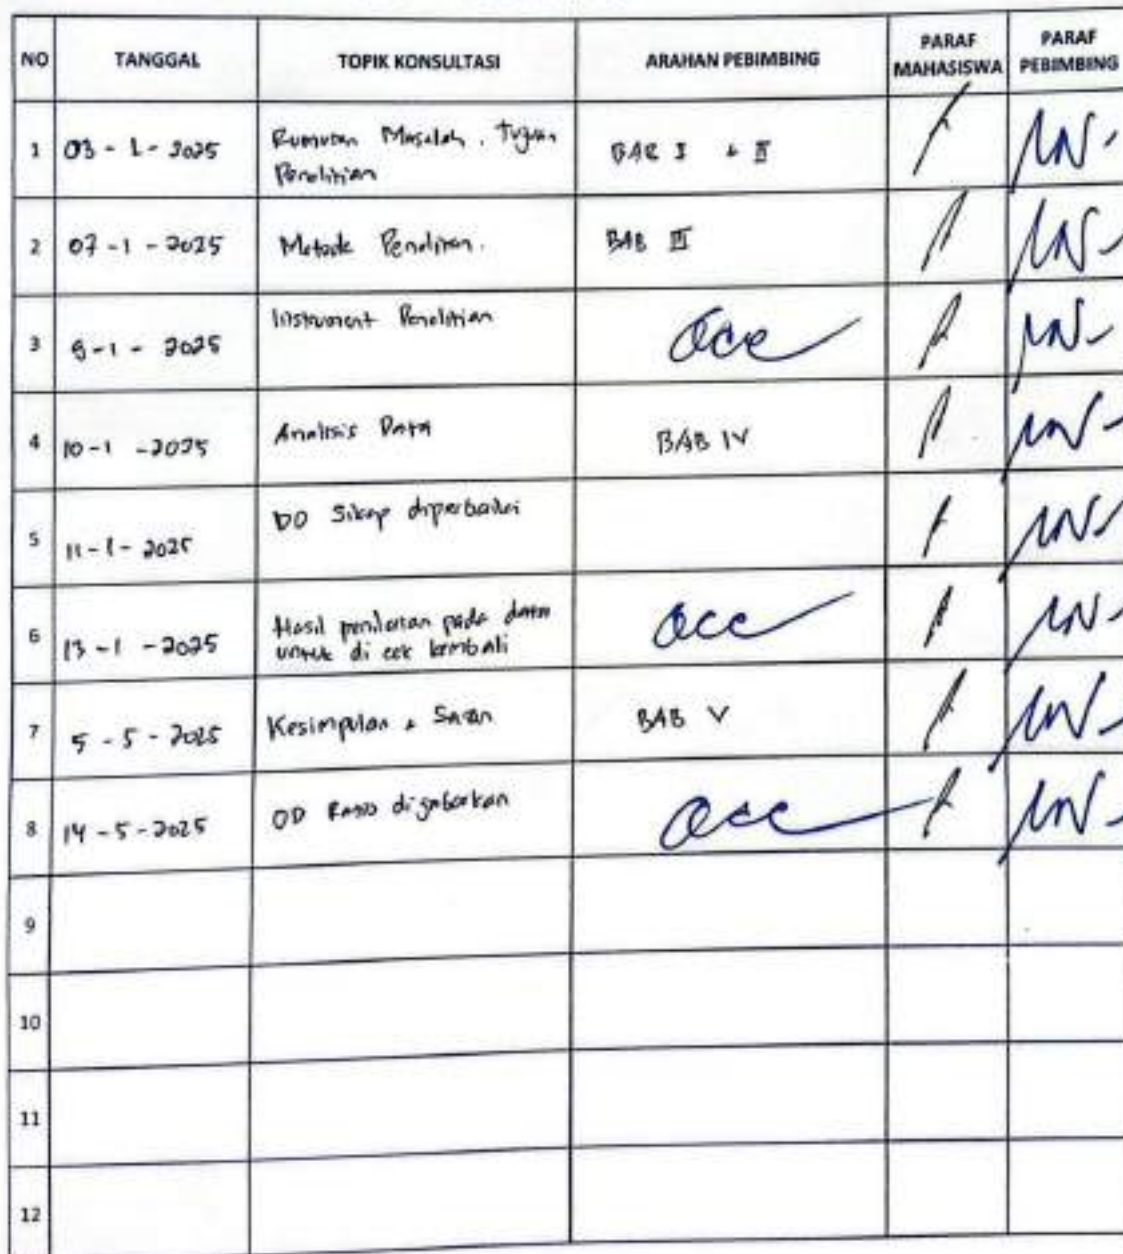 NO TANGGAL TOPIK KONSULTASI ARAHAN PEBIMBING PARAF MAHASISWA PARAF PEBIMBING
1 03 - 1 - 2025 Rumusan Masalah, Tujuan
Penelitian BAB I + II
2 07 - 1 - 2025 Metode Penelitian. BAB III
3 9 - 1 - 2025 Instrument Penelitian acc
4 10 - 1 - 2025 Analisis Data BAB IV
5 11 - 1 - 2025 DO Sikap diperbaiki
6 13 - 1 - 2025 Hasil penilaian pada data
untuk di cek kembali acc
7 5 - 5 - 2025 Kesimpulan + Saran BAB V
8 14 - 5 - 2025 OD Rasio acc
9
10
11
12